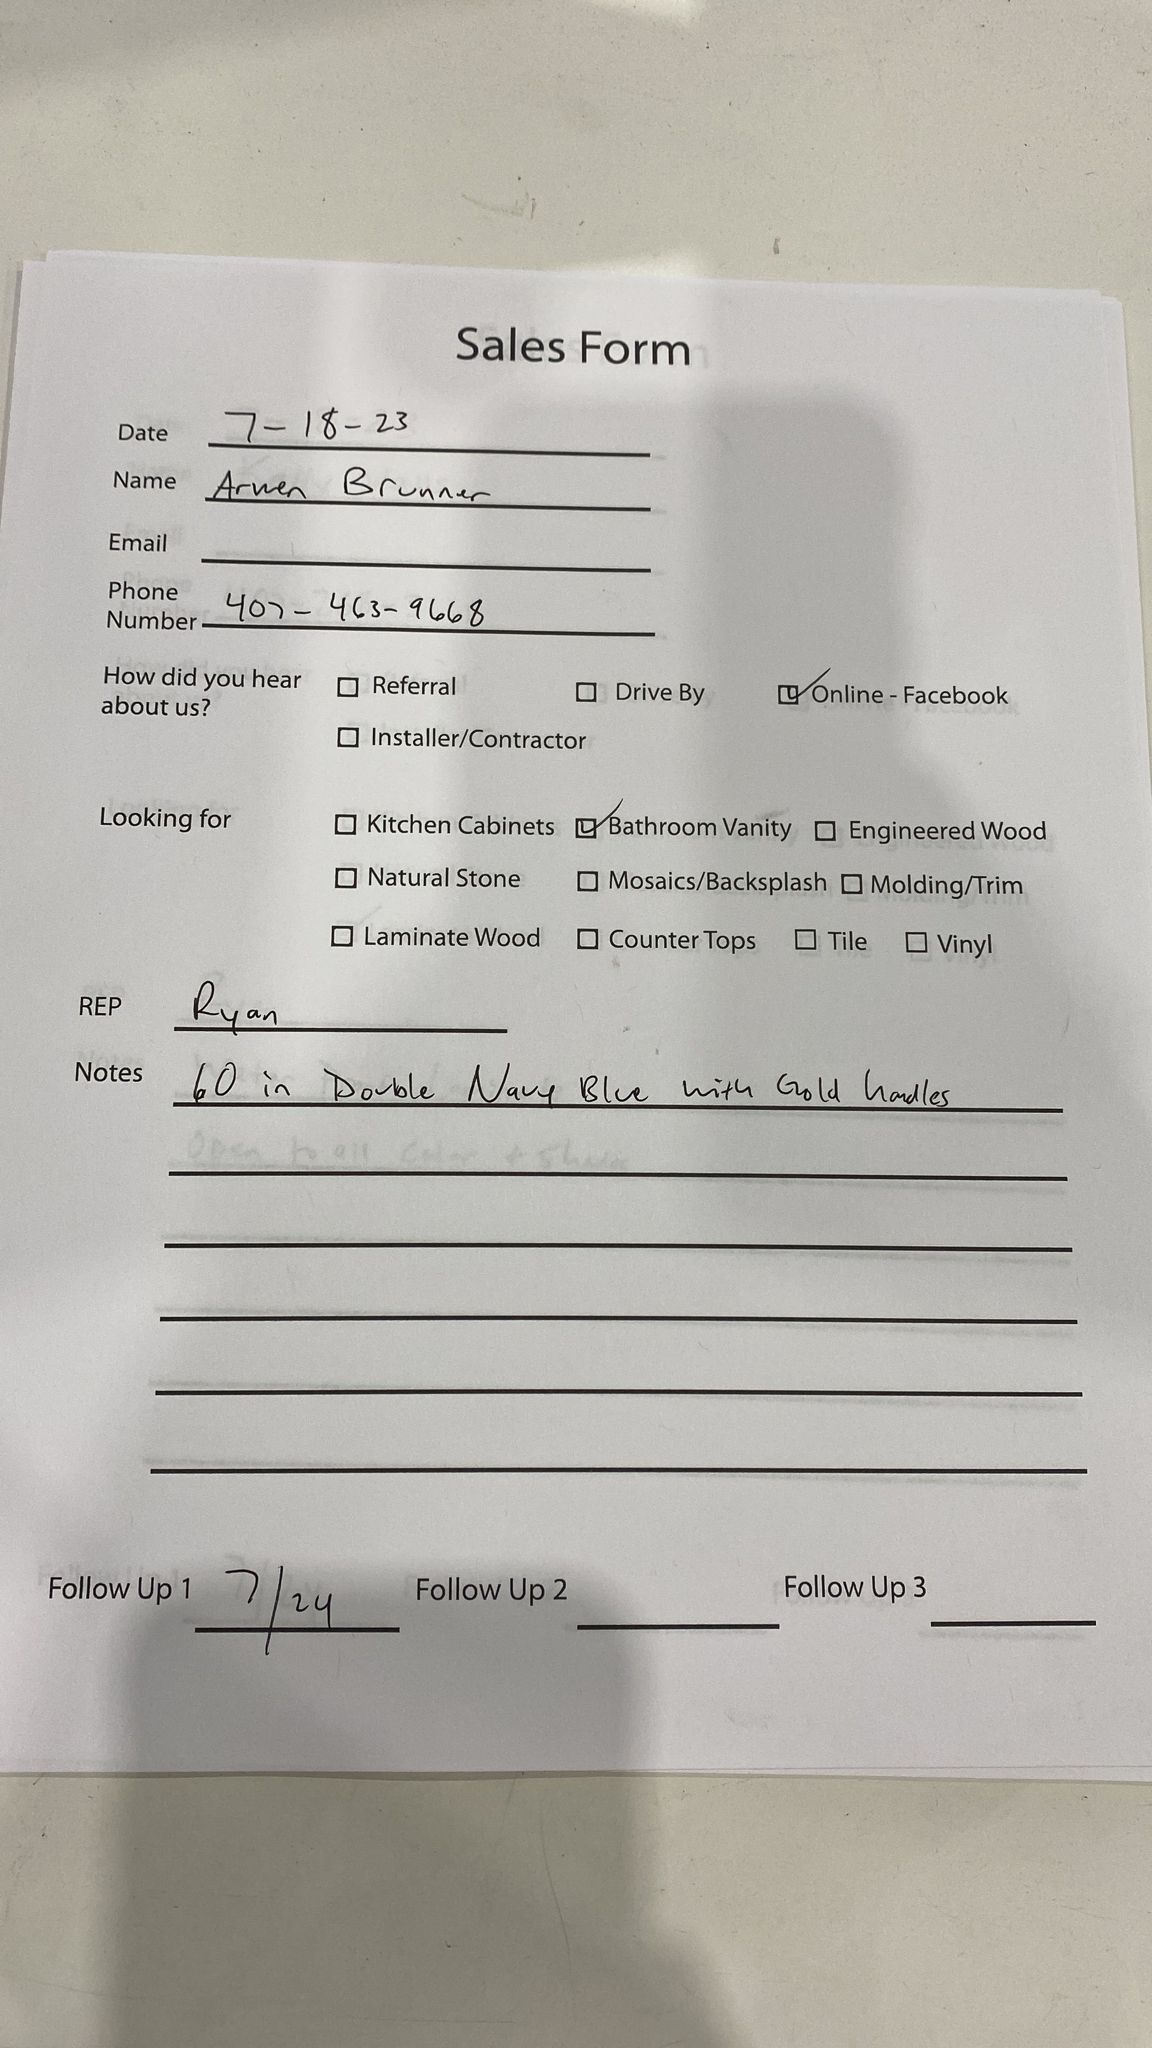 Sales Form
Date 7-18-23
Name Arwen Brunner
Email
Phone Number 407-463-9668
How did you hear about us?
☐ Referral ☐ Drive By ☑ Online - Facebook
☐ Installer/Contractor
Looking for
☐ Kitchen Cabinets ☑ Bathroom Vanity ☐ Engineered Wood
☐ Natural Stone ☐ Mosaics/Backsplash ☐ Molding/Trim
☐ Laminate Wood ☐ Counter Tops ☐ Tile ☐ Vinyl
REP Ryan
Notes 60 in Double Navy Blue with Gold handles
Open to all color +
Follow Up 1 7/24 Follow Up 2 Follow Up 3